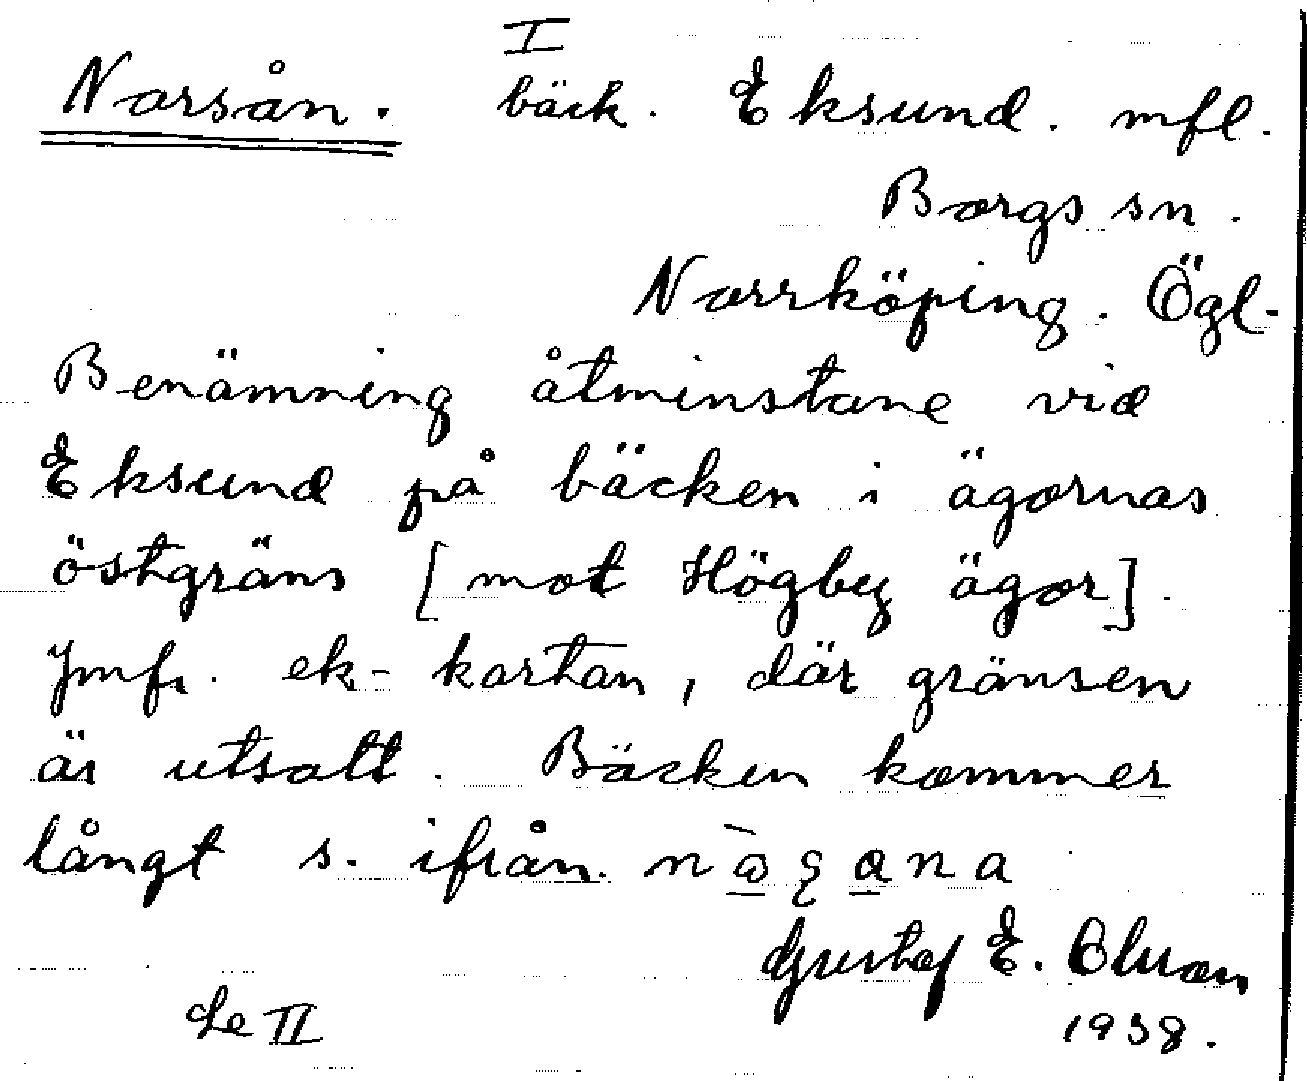 I
Norsån. bäck. Eksund. mfl.
Borgs sn.
Norrköping. Ögl.
Benämning åtminstone vid
Eksund på bäcken i ägornas
östgräns [mot Högby ägor].
Jmfr. ek-kartan, där gränsen
är utsatt. Bäcken kommer
långt s. ifrån.
Gustaf E. Olsson
1938.
Se II